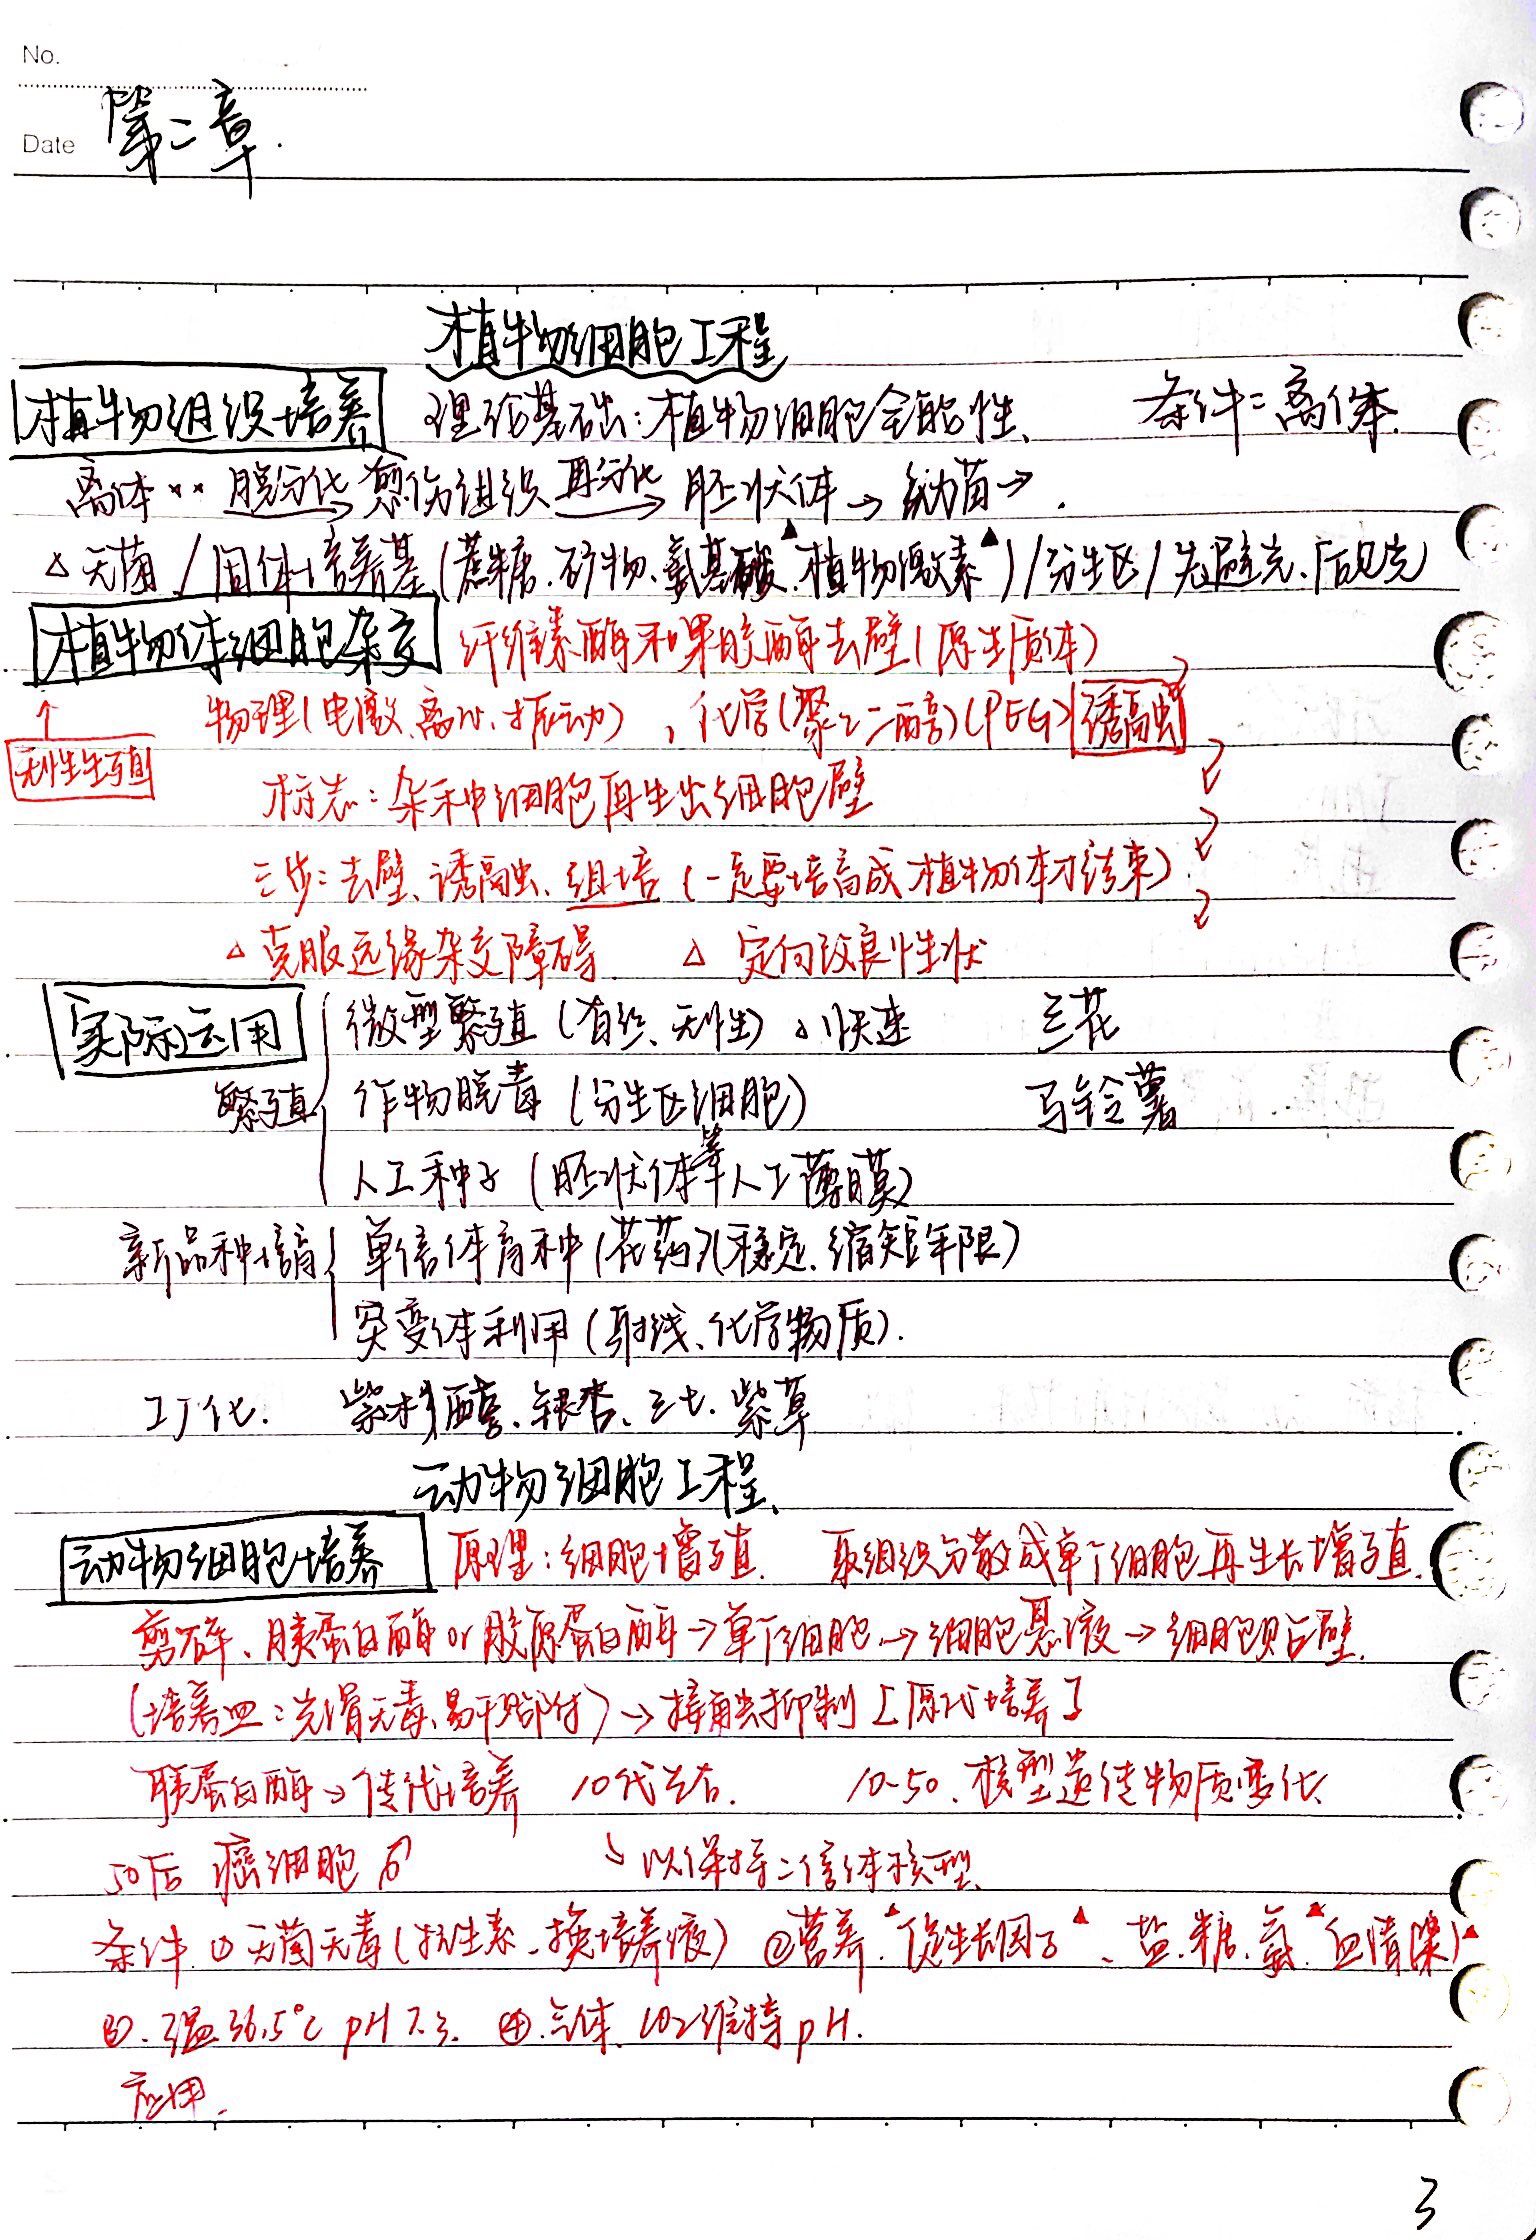 No.
Date 第二章.
植物细胞工程
植物组织培养 理论基础:植物细胞全能性、 条件:离体.
离体·· 脱分化→ 愈伤组织 再分化→ 胚状体→幼苗→.
△无菌/固体培养基(蔗糖、矿物、氨基酸▲、植物激素▲)/分生区/先避光、后见光
植物体细胞杂交 纤维素酶和果胶酶去壁(原生质体)
↑ 物理(电激、离心、振动),化学(聚乙二醇)(PEG)诱融
无性生殖
标志:杂种细胞再生出细胞壁
三步:去壁、诱融、组培(一定要培育成植物体才结束).
△克服远缘杂交障碍. △定向改良性状
实际运用 微型繁殖(有丝、无性)△快速 兰花
繁殖 作物脱毒(分生区细胞) 马铃薯
人工种子(胚状体等人工薄膜)
新品种培育 单倍体育种(花药)(稳定、缩短年限)
突变体利用(射线、化学物质).
工厂化. 紫杉醇、银杏、三七、紫草
动物细胞工程、
动物细胞培养 原理:细胞增殖. 取组织分散成单个细胞再生长增殖.
剪碎、胰蛋白酶or胶原蛋白酶→单个细胞→细胞悬液→细胞贴壁.
(培养皿:光滑无毒、易于贴附)→接触抑制[原代培养]
胰蛋白酶→传代培养 10代左右. 10-50.核型遗传物质变化
50后 癌细胞 ↘以保持二倍体核型.
条件 ①无菌无毒(抗生素、换培养液) ②营养▲促生长因子▲、盐.糖.氨▲血清(浆)▲
③.温36.5℃ pH 7.3. ④.气体.CO2维持pH.
应用.
3